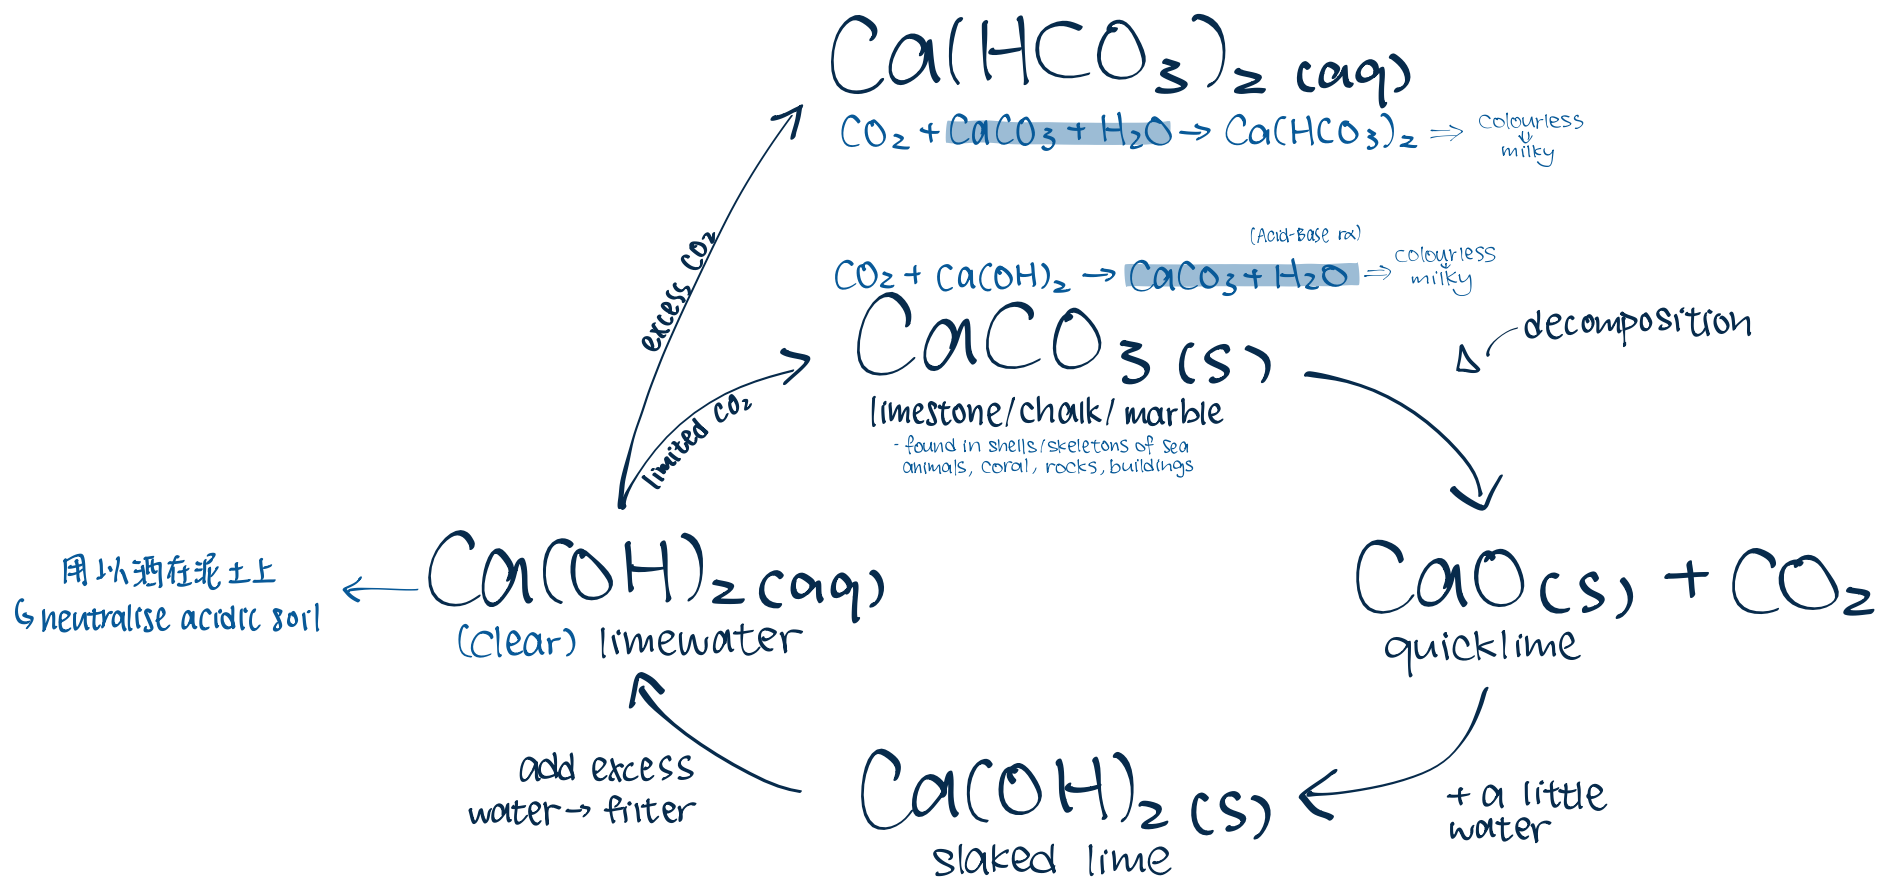 Ca(HCO₃)₂ (aq)
CO₂ + CaCO₃ + H₂O → Ca(HCO₃)₂ ⇒ colourless
⇓
milky
excess CO₂
(Acid-Base rx)
CO₂ + Ca(OH)₂ → CaCO₃ + H₂O ⇒ colourless
↓
milky
CaCO₃ (s)
limestone/chalk/marble
- found in shells/skeletons of sea
animals, coral, rocks, buildings
limited CO₂
Δ
decomposition
用以洒在泥土上
↳ neutralise acidic soil
Ca(OH)₂ (aq)
(clear) limewater
CaO(s) + CO₂
quicklime
add excess
water → filter
Ca(OH)₂ (s)
slaked lime
+ a little
water